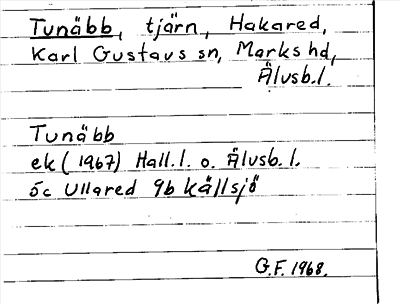 Tunäbb, tjärn, Hakared,
Karl Gustavs sn, Marks hd,
Älvsb.l.
Tunäbb
ek (1967) Hall.l. o. Älvsb.l.
5c Ullared 9b Källsjö
G.F. 1968.